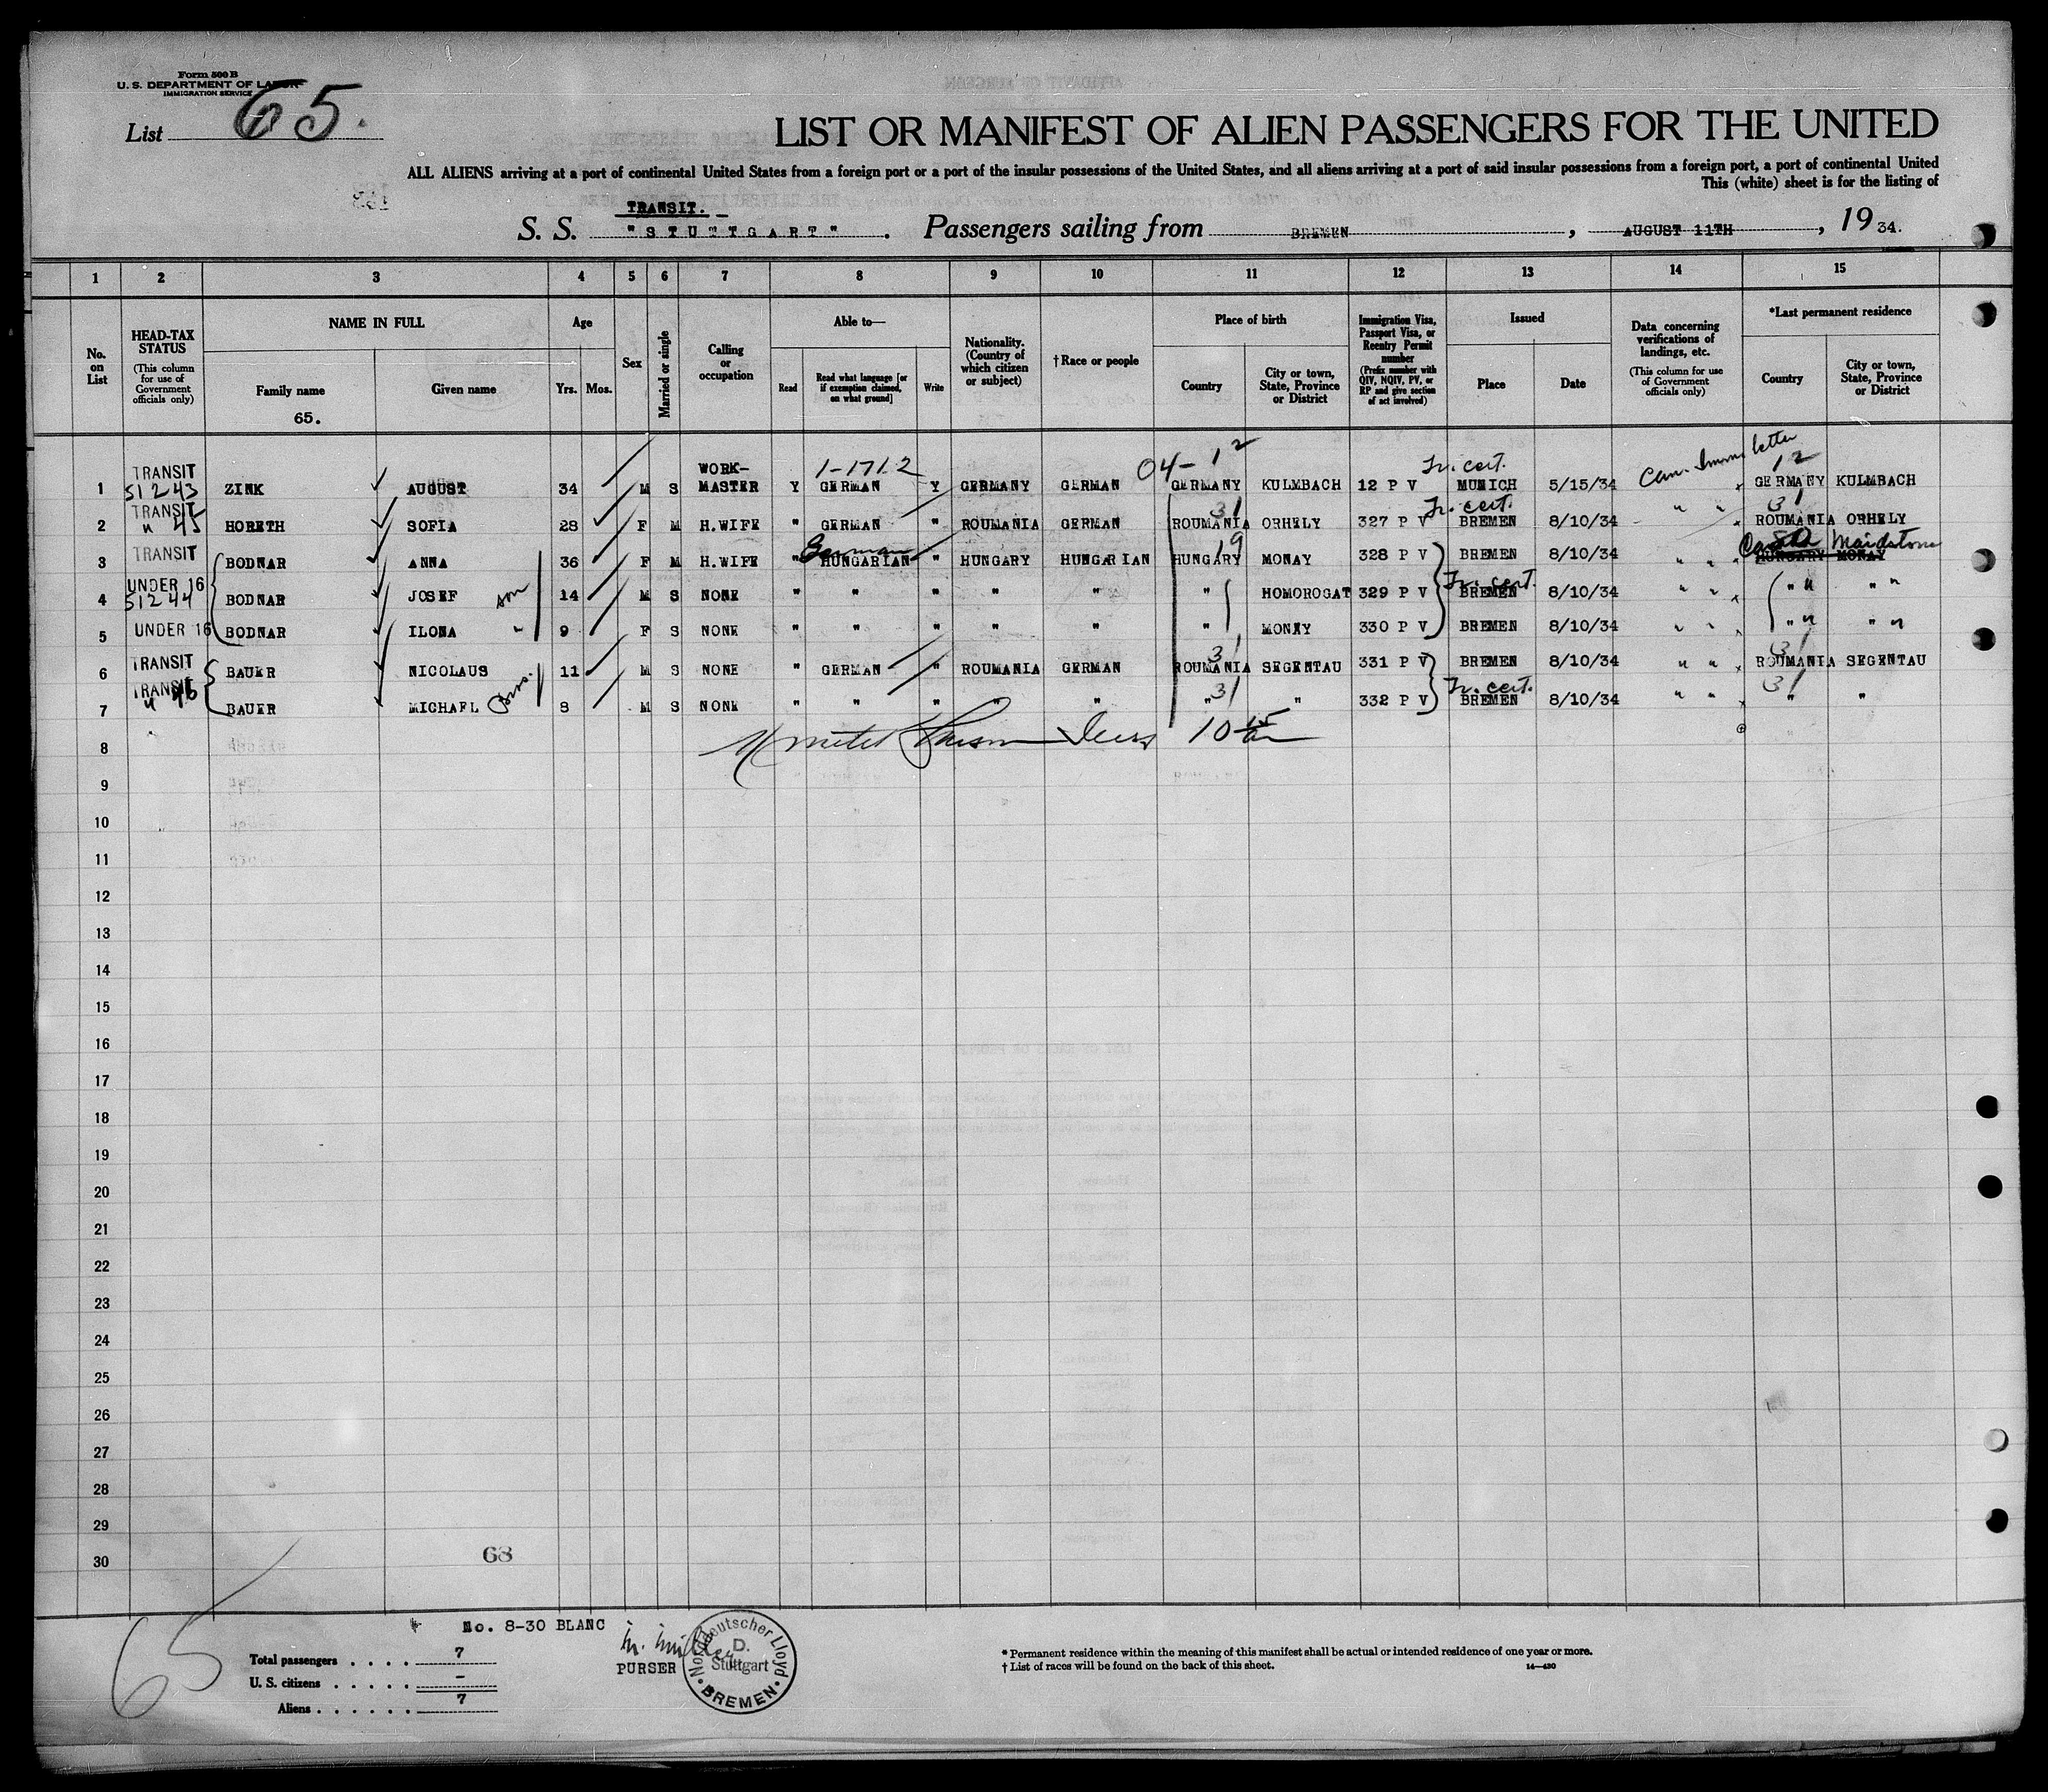 Form 500 B
U. S. DEPARTMENT OF LABOR
IMMIGRATION SERVICE
List 65.
LIST OR MANIFEST OF ALIEN PASSENGERS FOR THE UNITED
ALL ALIENS arriving at a port of continental United States from a foreign port or a port of the insular possessions of the United States, and all aliens arriving at a port of said insular possessions from a foreign port, a port of continental United
This (white) sheet is for the listing of
TRANSIT.
S. S. "STUTTGART". Passengers sailing from BREMEN, AUGUST 11TH, 1934.
1 2 3 4 5 6 7 8 9 10 11 12 13 14 15
No. on List
HEAD-TAX STATUS (This column for use of Government officials only)
NAME IN FULL
Family name
65.
Given name
Age
Yrs. Mos.
Sex
Married or single
Calling or occupation
Able to—
Read
Read what language [or if exemption claimed, on what ground]
Write
Nationality. (Country of which citizen or subject)
† Race or people
Place of birth
Country
City or town, State, Province or District
Immigration Visa, Passport Visa, or Reentry Permit number (Prefix number with QIV, NQIV, PV, or RP and give section of act involved)
Issued
Place
Date
Data concerning verifications of landings, etc. (This column for use of Government officials only)
*Last permanent residence
Country
City or town, State, Province or District
1 TRANSIT 51243 ZINK AUGUST 34 M S WORK-MASTER Y 1-1712 GERMAN Y GERMANY GERMAN 04-12 GERMANY KULMBACH 12 P V Tr. cert. MUNICH 5/15/34 Can. Imm letter 12 GERMANY KULMBACH
2 TRANSIT " 45 HORETH SOFIA 28 F M H.WIFE " GERMAN " ROUMANIA GERMAN 31 ROUMANIA ORHELY 327 P V Tr. cert. BREMEN 8/10/34 " " 31 ROUMANIA ORHELY
3 TRANSIT BODNAR ANNA 36 F M H.WIFE " German HUNGARIAN " HUNGARY HUNGARIAN 19 HUNGARY MONAY 328 P V BREMEN 8/10/34 " " HUNGARY MONAY Maidstone
4 UNDER 16 51244 BODNAR JOSEF son 14 M S NONE " " " " " " HOMOROGAT 329 P V Tr. cert. BREMEN 8/10/34 " " " " " "
5 UNDER 16 BODNAR ILONA " 9 F S NONE " " " " " " MONAY 330 P V BREMEN 8/10/34 " " " " " "
6 TRANSIT BAUER NICOLAUS 11 M S NONE " GERMAN " ROUMANIA GERMAN 31 ROUMANIA SEGENTAU 331 P V BREMEN 8/10/34 " " 31 ROUMANIA SEGENTAU
7 TRANSIT " 46 BAUER MICHAEL Bros. 8 M S NONE " " " " " 31 " " 332 P V Tr. cert. BREMEN 8/10/34 " " 31 " "
8
9
10
11
12
13
14
15
16
17
18
19
20
21
22
23
24
25
26
27
28
29
30
68
65
No. 8-30 BLANC
PURSER
Norddeutscher Lloyd
D. Stuttgart
BREMEN
Total passengers . . . . 7
U. S. citizens . . . . . –
Aliens . . . . . . 7
* Permanent residence within the meaning of this manifest shall be actual or intended residence of one year or more.
† List of races will be found on the back of this sheet.
14—430